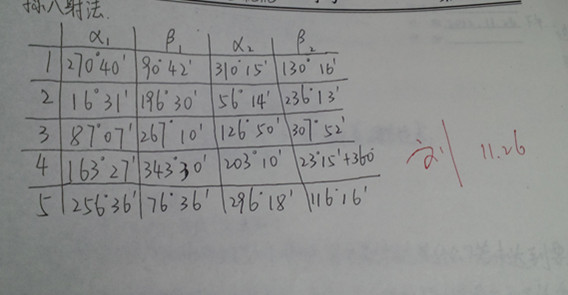 掠入射法.
α₁ β₁ α₂ β₂
1 270°40' 90°42' 310°15' 130°16'
2 16°31' 196°30' 56°14' 236°13'
3 87°07' 267°10' 126°50' 307°52'
4 163°27' 343°30' 203°10' 23°15'+360
5 256°36' 76°36' 296°18' 116°16'
11.26